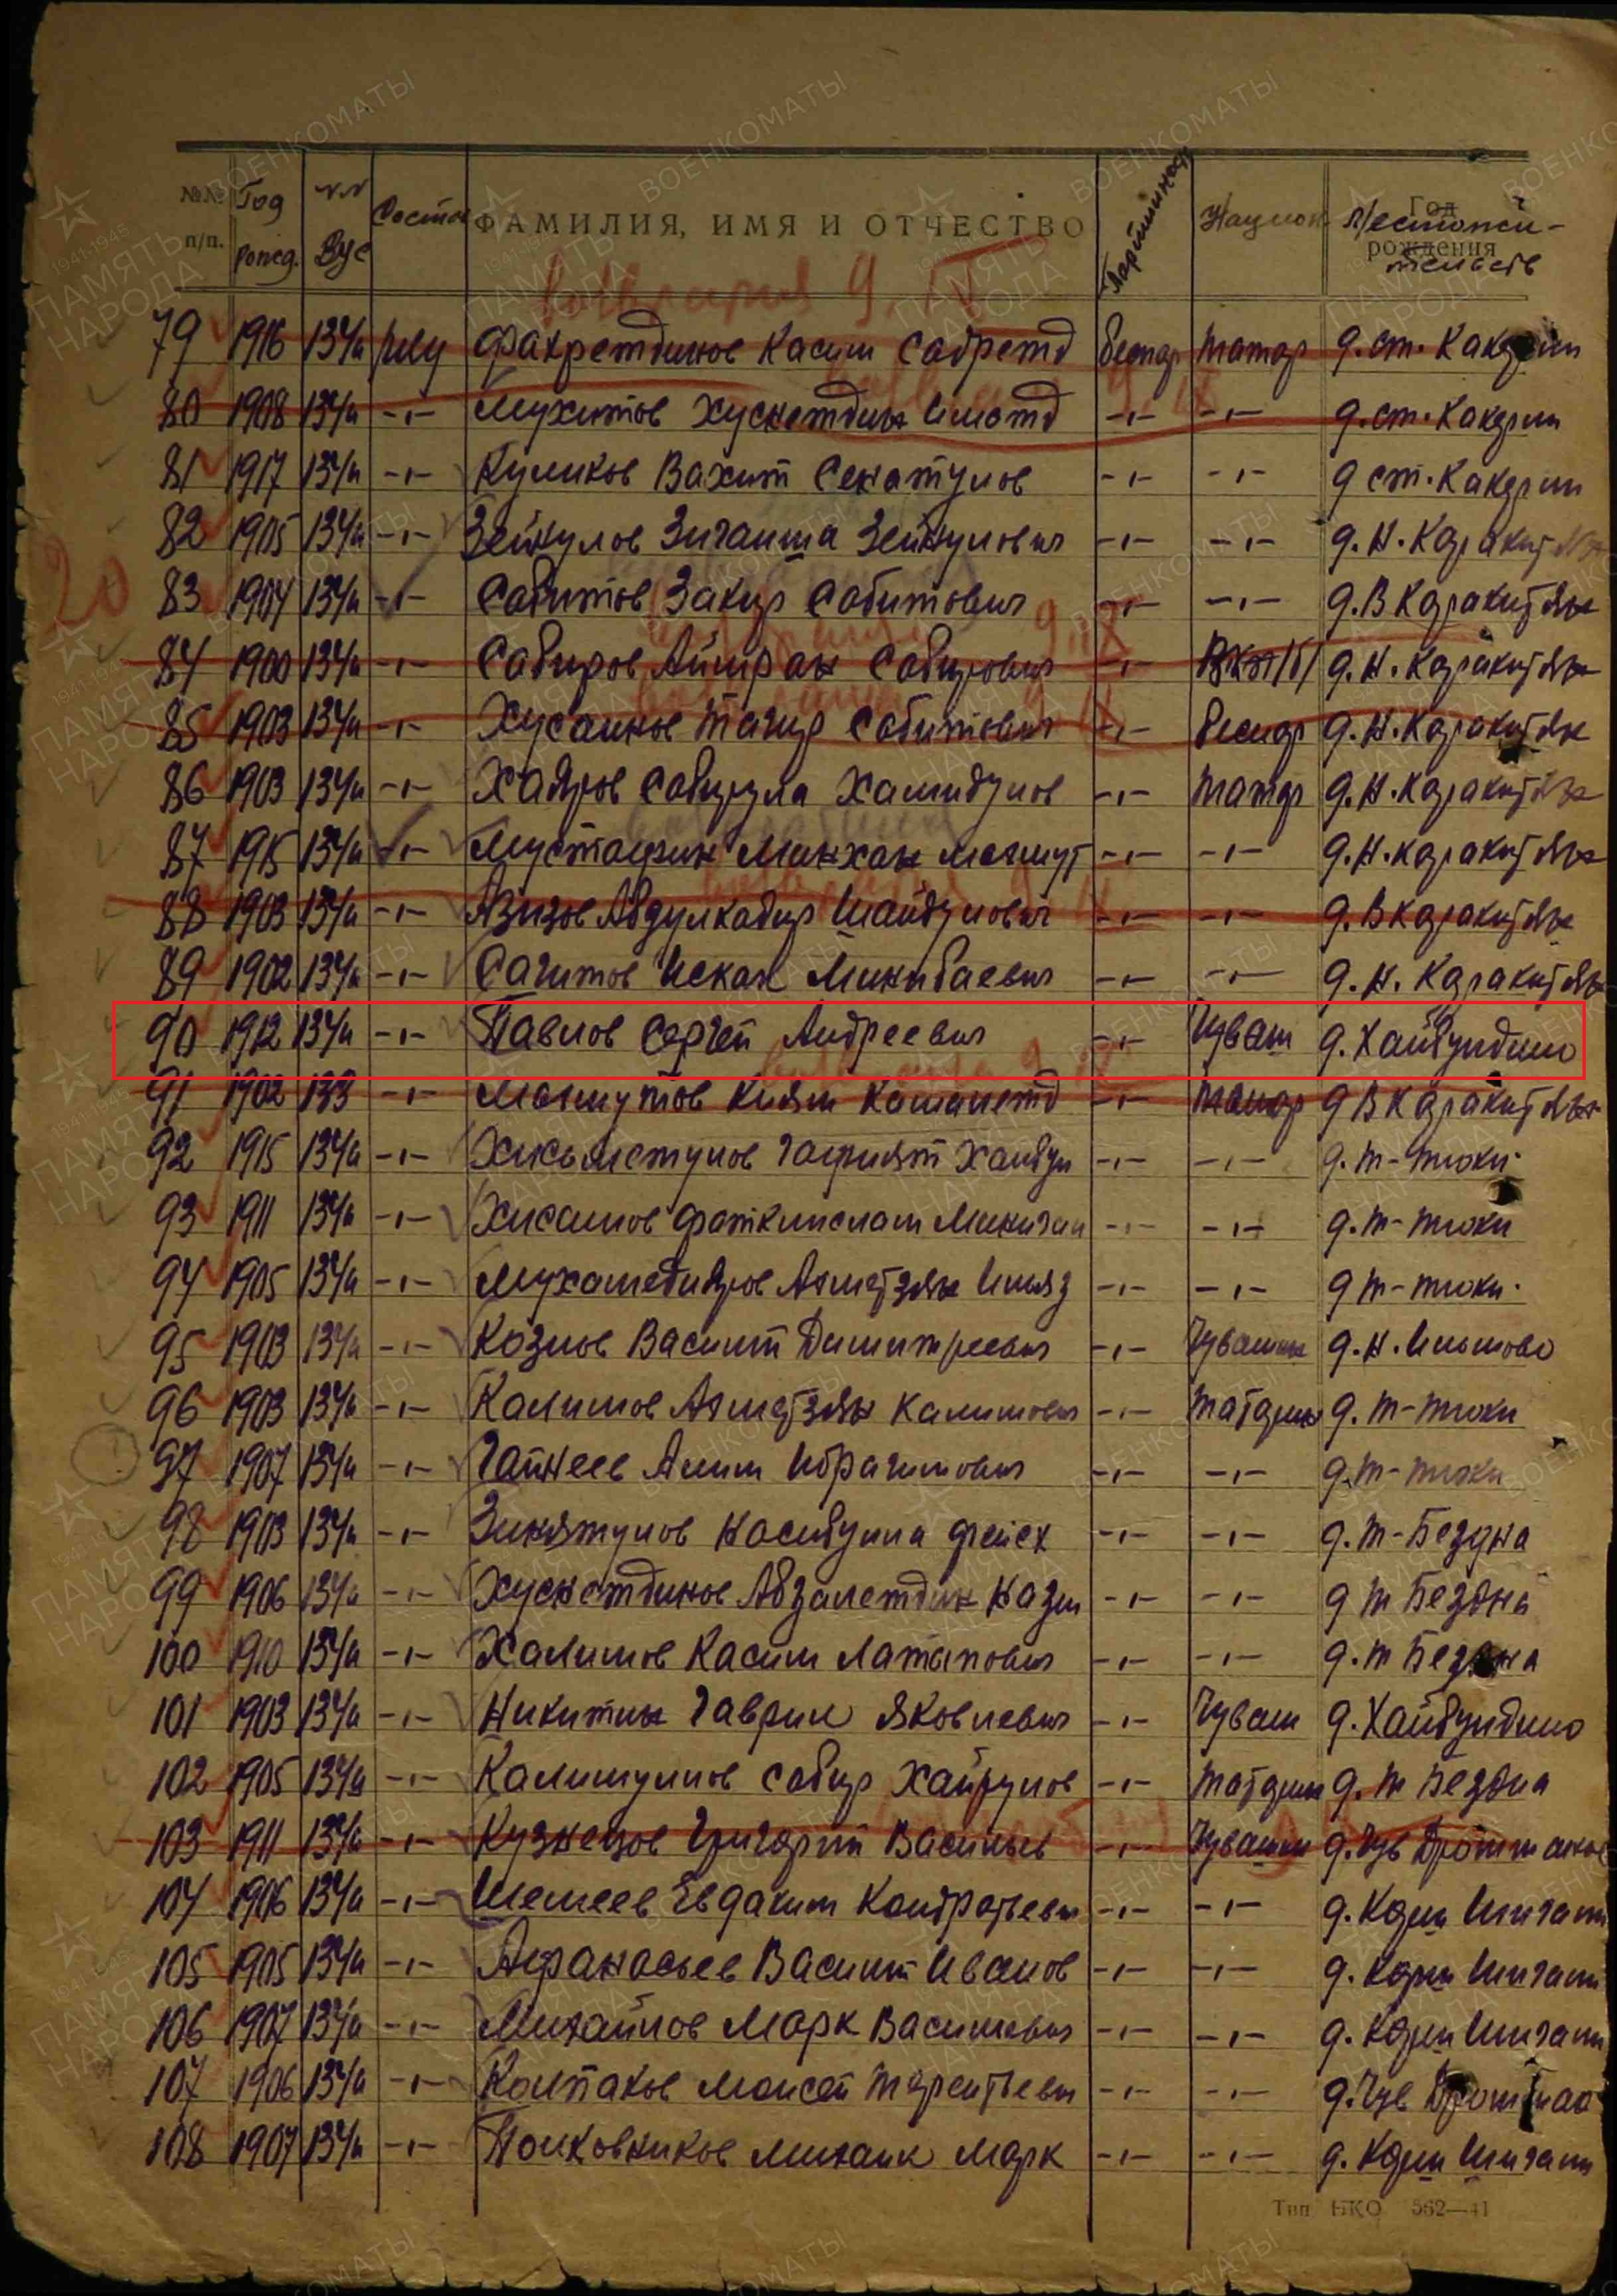 №№ п/п. Год рожд. №№ ВУС Состав ФАМИЛИЯ, ИМЯ И ОТЧЕСТВО Партийность Национ. Год рождения Местожительств
возвращен 9.IX
79 1916 134/а ряд Фахретдинов Касим Садретд беспар татар д.ст. Какерли
80 1908 134/а -"- Мухитов Хуснетдин -"- -"- д.ст. Какерли
81 1917 134/а -"- Куликов Вахит -"- -"- д ст. Какерли
82 1905 134/а -"- Зейнулов Зиганша Зейнулович -"- -"- д. Н. Каракит
20
83 1904 134/а -"- Сабитов Закир Сабитович -"- -"- д. В Каракит
84 1900 134/а -"- Сабиров Сабирович -"- ВКП/б/ д. Н. Каракит
85 1903 134/а -"- Хусаинов Тагир Сабитович -"- беспар д. Н. Каракит
86 1903 134/а -"- Сабирула Хамидулов -"- татар д. Н. Каракит
87 1915 134/а -"- Мустафин Минхан Махмут -"- -"- д. Н. Каракит
88 1903 134/а -"- Азизов Абдулкабир -"- -"- д. В Каракит
89 1902 134/а -"- Сагитов Искан Минибаевич -"- -"- д. Н. Каракит
90 1912 134/а -"- Павлов Сергей Андреевич -"- Чуваш д. Хайбулдино
91 1902 133 -"- Махмутов Киям -"- татар д В Каракит
92 1915 134/а -"- Хисаметулов -"- -"- д. Т-Тюки
93 1911 134/а -"- Хисамов Фаткислам -"- -"- д. Т-Тюки
94 1905 134/а -"- Мухамедияров Ахметзян Нияз -"- -"- д Т-Тюки.
95 1903 134/а -"- Козлов Василий Димитреевич -"- Чувашин д. Н. Ильмово
96 1903 134/а -"- Калимов Ахметзян Калимович -"- Татарин д. Т-Тюки
97 1907 134/а -"- Гайнеев Алим Ибрагимович -"- -"- д. Т-Тюки
98 1903 134/а -"- Зиннятулов Насибулла -"- -"- д. Т-Бездна
99 1906 134/а -"- Хуснетдинов Абзалетдин -"- -"- д Т Бездна
100 1910 134/а -"- Халимов Касим Латыпович -"- -"- д. Т Бездна
101 1903 134/а -"- Никитин Гаврил Яковлевич -"- Чуваш д. Хайбулдино
102 1905 134/а -"- Калимуллов Сабир Хайрулов -"- Татарин д. Т Бездна
103 1911 134/а -"- Кузнецов Григорий Васильев -"- Чувашин д. Чув Дрожжаное
104 1906 134/а -"- Шемеев Евдаким Кондратьевич -"- -"- д. Корн Шигали
105 1905 134/а -"- Афанасьев Василий Иванов -"- -"- д. Корн Шигали
106 1907 134/а -"- Михайлов Марк Васильевич -"- -"- д. Корн Шигали
107 1906 134/а -"- Колпаков Моисей Терентьевич -"- -"- д. Чув
108 1907 134/а -"- Полковников Михаил Марк -"- -"- д. Корн Шигали
Тип НКО 562—41